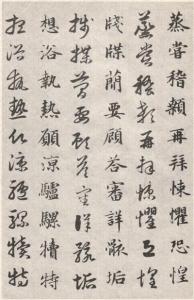 蒸嘗稽顙再拜悚懼恐惶
蒸嘗稽顙再拜悚懼恐惶
牋牒簡要顧答審詳骸垢
牋牒簡要顧答審詳骸垢
想浴執熱願涼驢騾犢特
想浴執熱願涼驢騾犢特